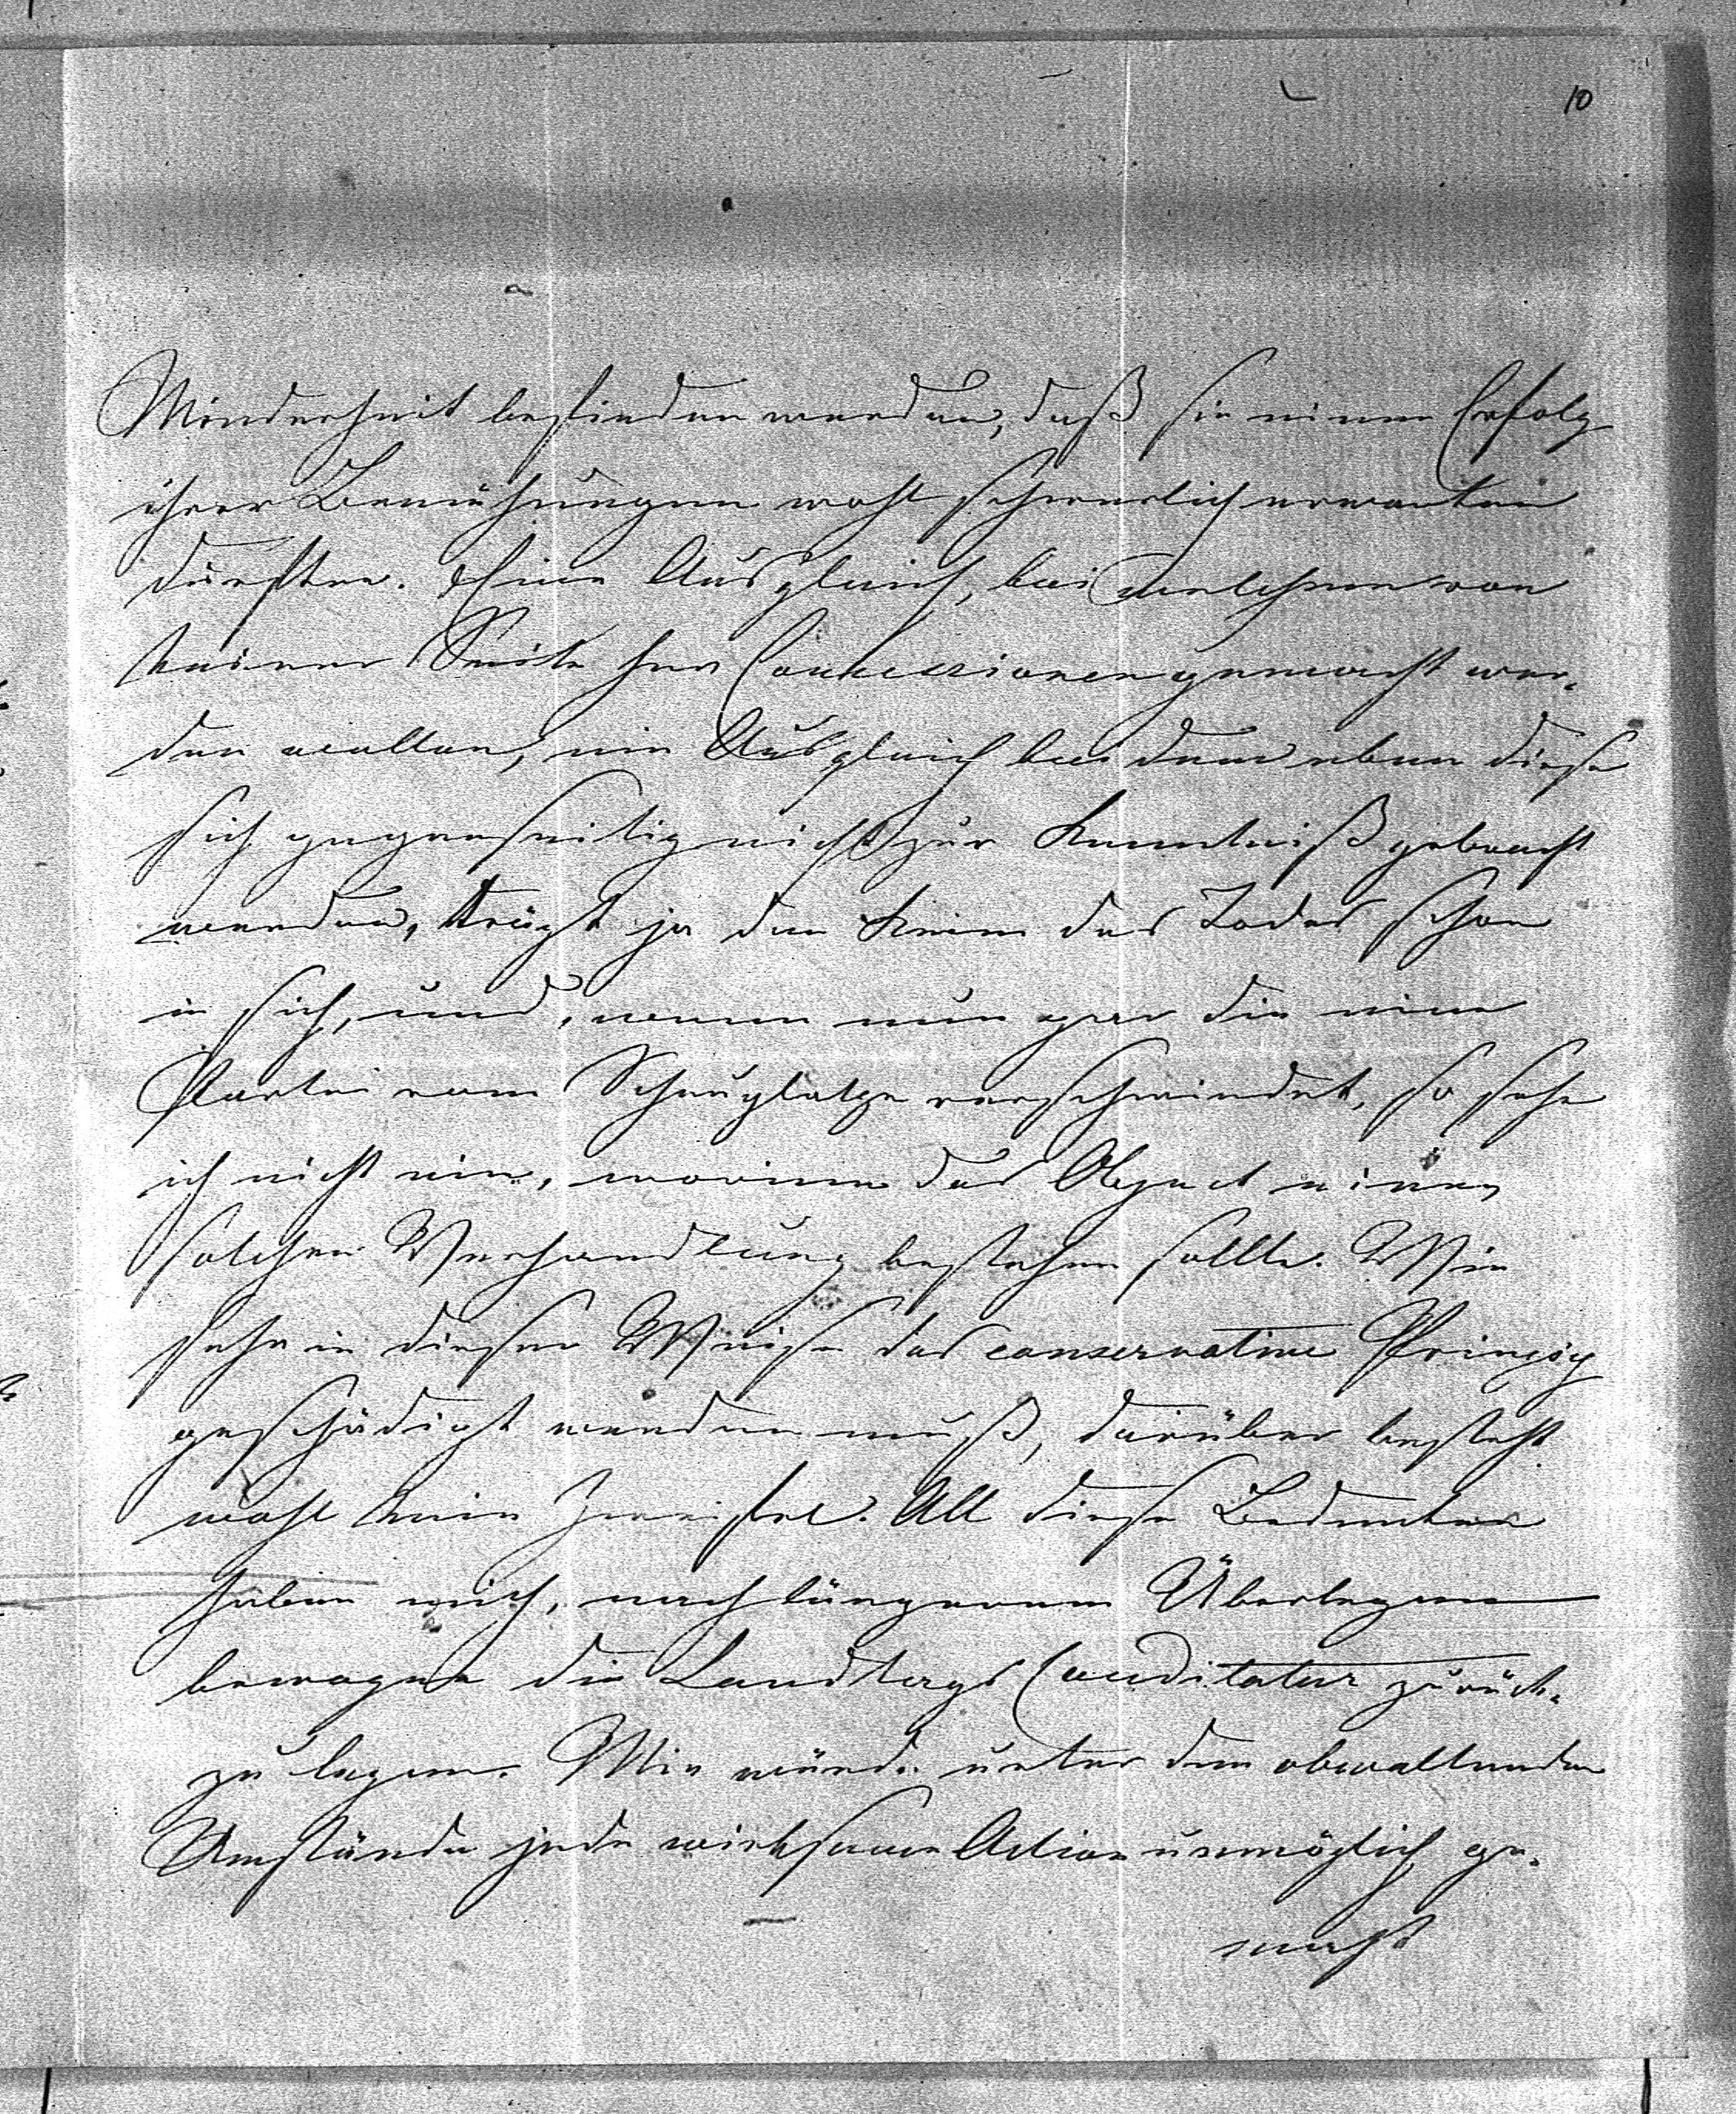 10
Minderheit befinden werden, daß sie einen Erfolg
ihrer Bemühungen wohl schwerlich erwarten
dürften. Ein Ausgleich, bei welchem von
keiner Seite her Concessionen gemacht wer-
den wollen, ein Ausgleich bei dem eben diese
sich gegenseitig nicht zur Kenntniß gebracht
werden, trägt ja den Keim des Todes schon
in sich, und, wenn nun gar die eine
Partei vom Schauplatze verschwindet, so sehe
ich nicht ein, worinn das Object einer
solchen Verhandlung bestehen sollte. Wie
sehr in dieser Weise das conservative Princip
geschädigt werden muß, darüber besteht
wohl kein Zweifel. All diese Bedenken
haben mich, nach längerem Überlegen
bewogen die Landtags Canditatur zurück-
zu legen. Mir würde unter den obwaltenden
Umständen jede wirksame Action unmöglich ge-
macht